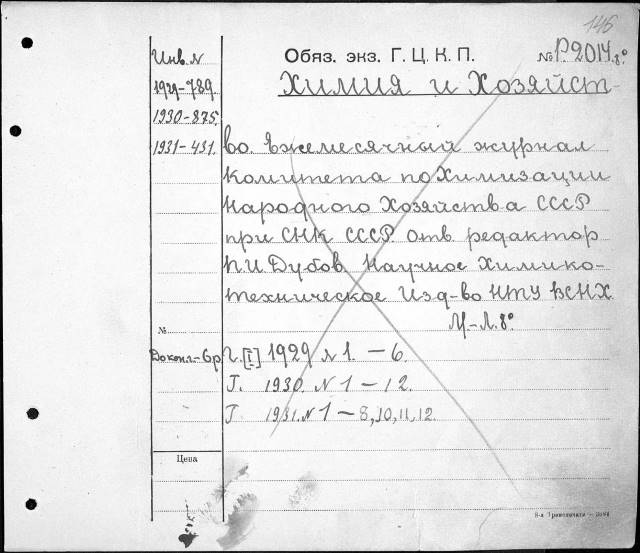 146
Инв. N Обяз. экз. Г. Ц. К. П. № Р.2014.8°
1929-789. Химия и Хозяйст-
1930-875.
1931-431. во Ежемесячный журнал
Комитета по Химизации
Народного Хозяйства СССР
при СНК СССР. Отв. редактор
П.И. Дубов. Научное Химико-
техническое Изд-во НТУ ВСНХ
№ М.-Л. 8°
Г. [I] 1929 N 1. — 6.
Г. 1930. N 1 — 12.
Г. 1931. N 1 — 8, 10, 11, 12.
Цена